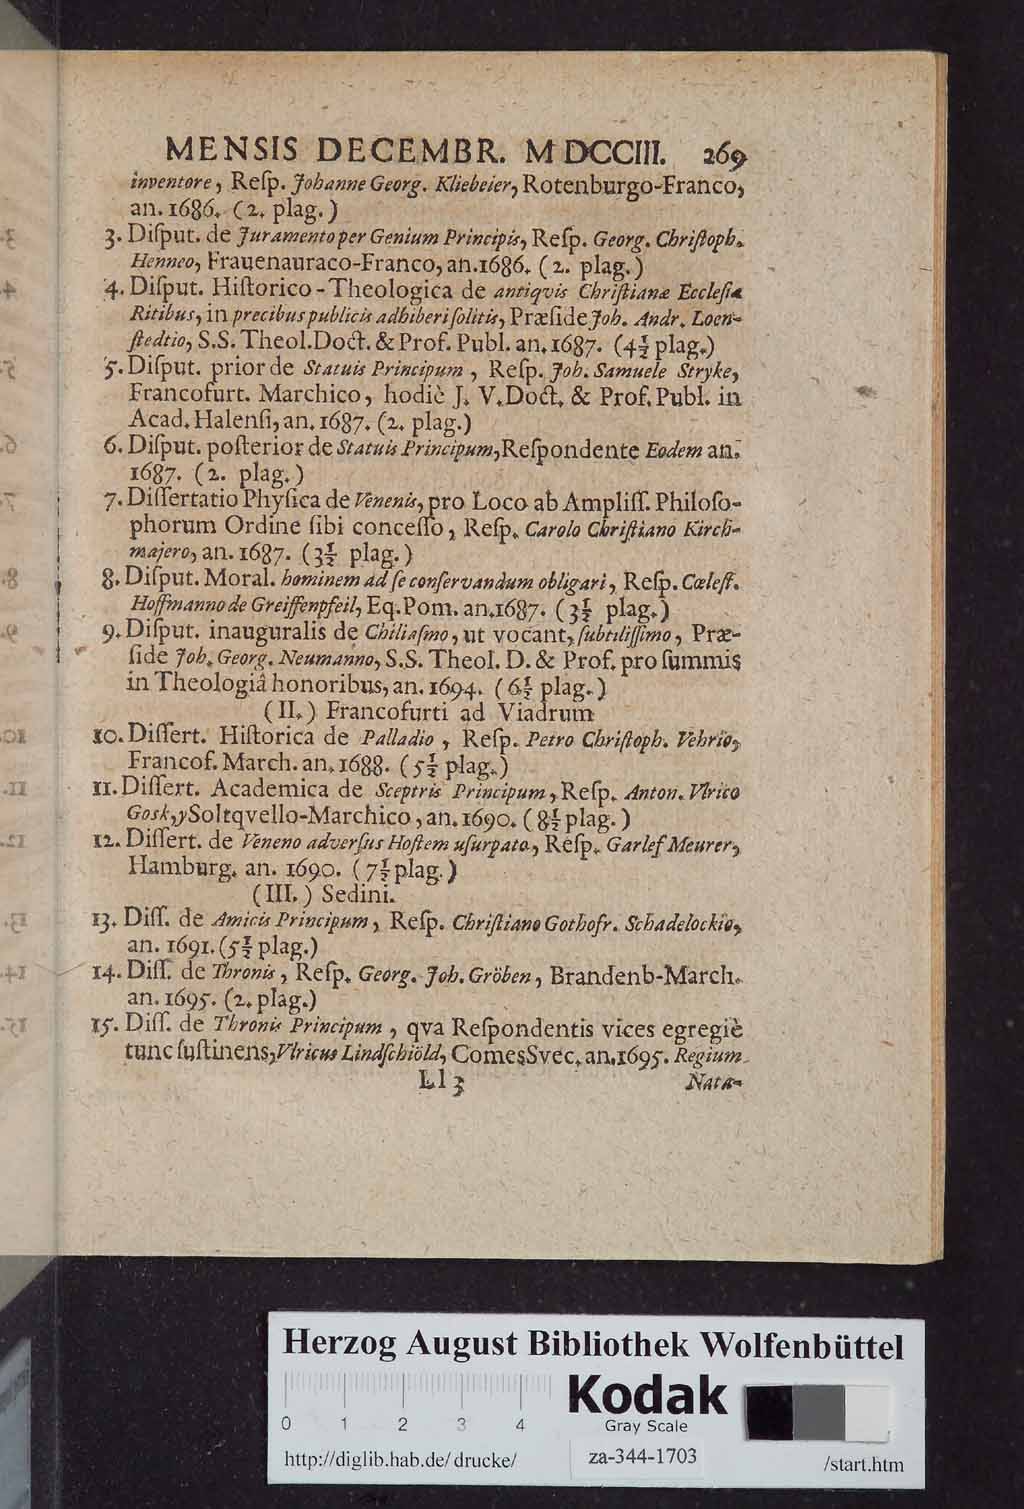 MENSIS DECEMBR. MDCCIII. 269
inventore, Reſp. Johanne Georg. Kliebeier, Rotenburgo-Franco,
an. 1686. (2. plag.)
3. Diſput. de Juramento per Genium Principis, Reſp. Georg. Chriſtoph.
Henneo, Frauenauraco-Franco, an. 1686. (2. plag.)
4. Diſput. Hiſtorico-Theologica de antiqvis Chriſtianæ Eccleſiæ
Ritibus, in precibus publicis adhiberi ſolitis, Præſide Joh. Andr. Loen-
ſtedtio, S.S. Theol. Doct. & Prof. Publ. an. 1687. (4½ plag.)
5. Diſput. prior de Statuis Principum, Reſp. Joh. Samuele Stryke,
Francofurt. Marchico, hodiè J. V. Doct. & Prof. Publ. in
Acad. Halenſi, an. 1687. (2. plag.)
6. Diſput. poſterior de Statuis Principum, Reſpondente Eodem an.
1687. (2. plag.)
7. Diſſertatio Phyſica de Venenis, pro Loco ab Ampliſſ. Philoſo-
phorum Ordine ſibi conceſſo, Reſp. Carolo Chriſtiano Kirch-
majero, an. 1687. (3½ plag.)
8. Diſput. Moral. hominem ad ſe conſervandum obligari, Reſp. Cœleſt.
Hoffmanno de Greiffenpfeil, Eq. Pom. an. 1687. (3½ plag.)
9. Diſput. inauguralis de Chiliaſmo, ut vocant, ſubtiliſſimo, Præ-
ſide Joh. Georg. Neumanno, S.S. Theol. D. & Prof. pro ſummis
in Theologiâ honoribus, an. 1694. (6½ plag.)
(II.) Francofurti ad Viadrum
10. Diſſert. Hiſtorica de Palladio, Reſp. Petro Chriſtoph. Vehrio,
Francof. March. an. 1688. (5½ plag.)
11. Diſſert. Academica de Sceptris Principum, Reſp. Anton. Vlrico
Gosky, Soltqvello-Marchico, an. 1690. (8½ plag.)
12. Diſſert. de Veneno adverſus Hoſtem uſurpato, Reſp. Garlef Meurer,
Hamburg. an. 1690. (7½ plag.)
(III.) Sedini.
13. Diſſ. de Amicis Principum, Reſp. Chriſtiano Gothofr. Schadelockio,
an. 1691. (5½ plag.)
14. Diſſ. de Thronis, Reſp. Georg. Joh. Gröben, Brandenb-March.
an. 1695. (2. plag.)
15. Diſſ. de Thronis Principum, qva Reſpondentis vices egregiè
tunc ſuſtinens, Vlricus Lindſchiöld, Comes Svec. an. 1695. Regium
Ll 3 Nata-
Herzog August Bibliothek Wolfenbüttel
0 1 2 3 4
Kodak
Gray Scale
http://diglib.hab.de/drucke/ za-344-1703 /start.htm